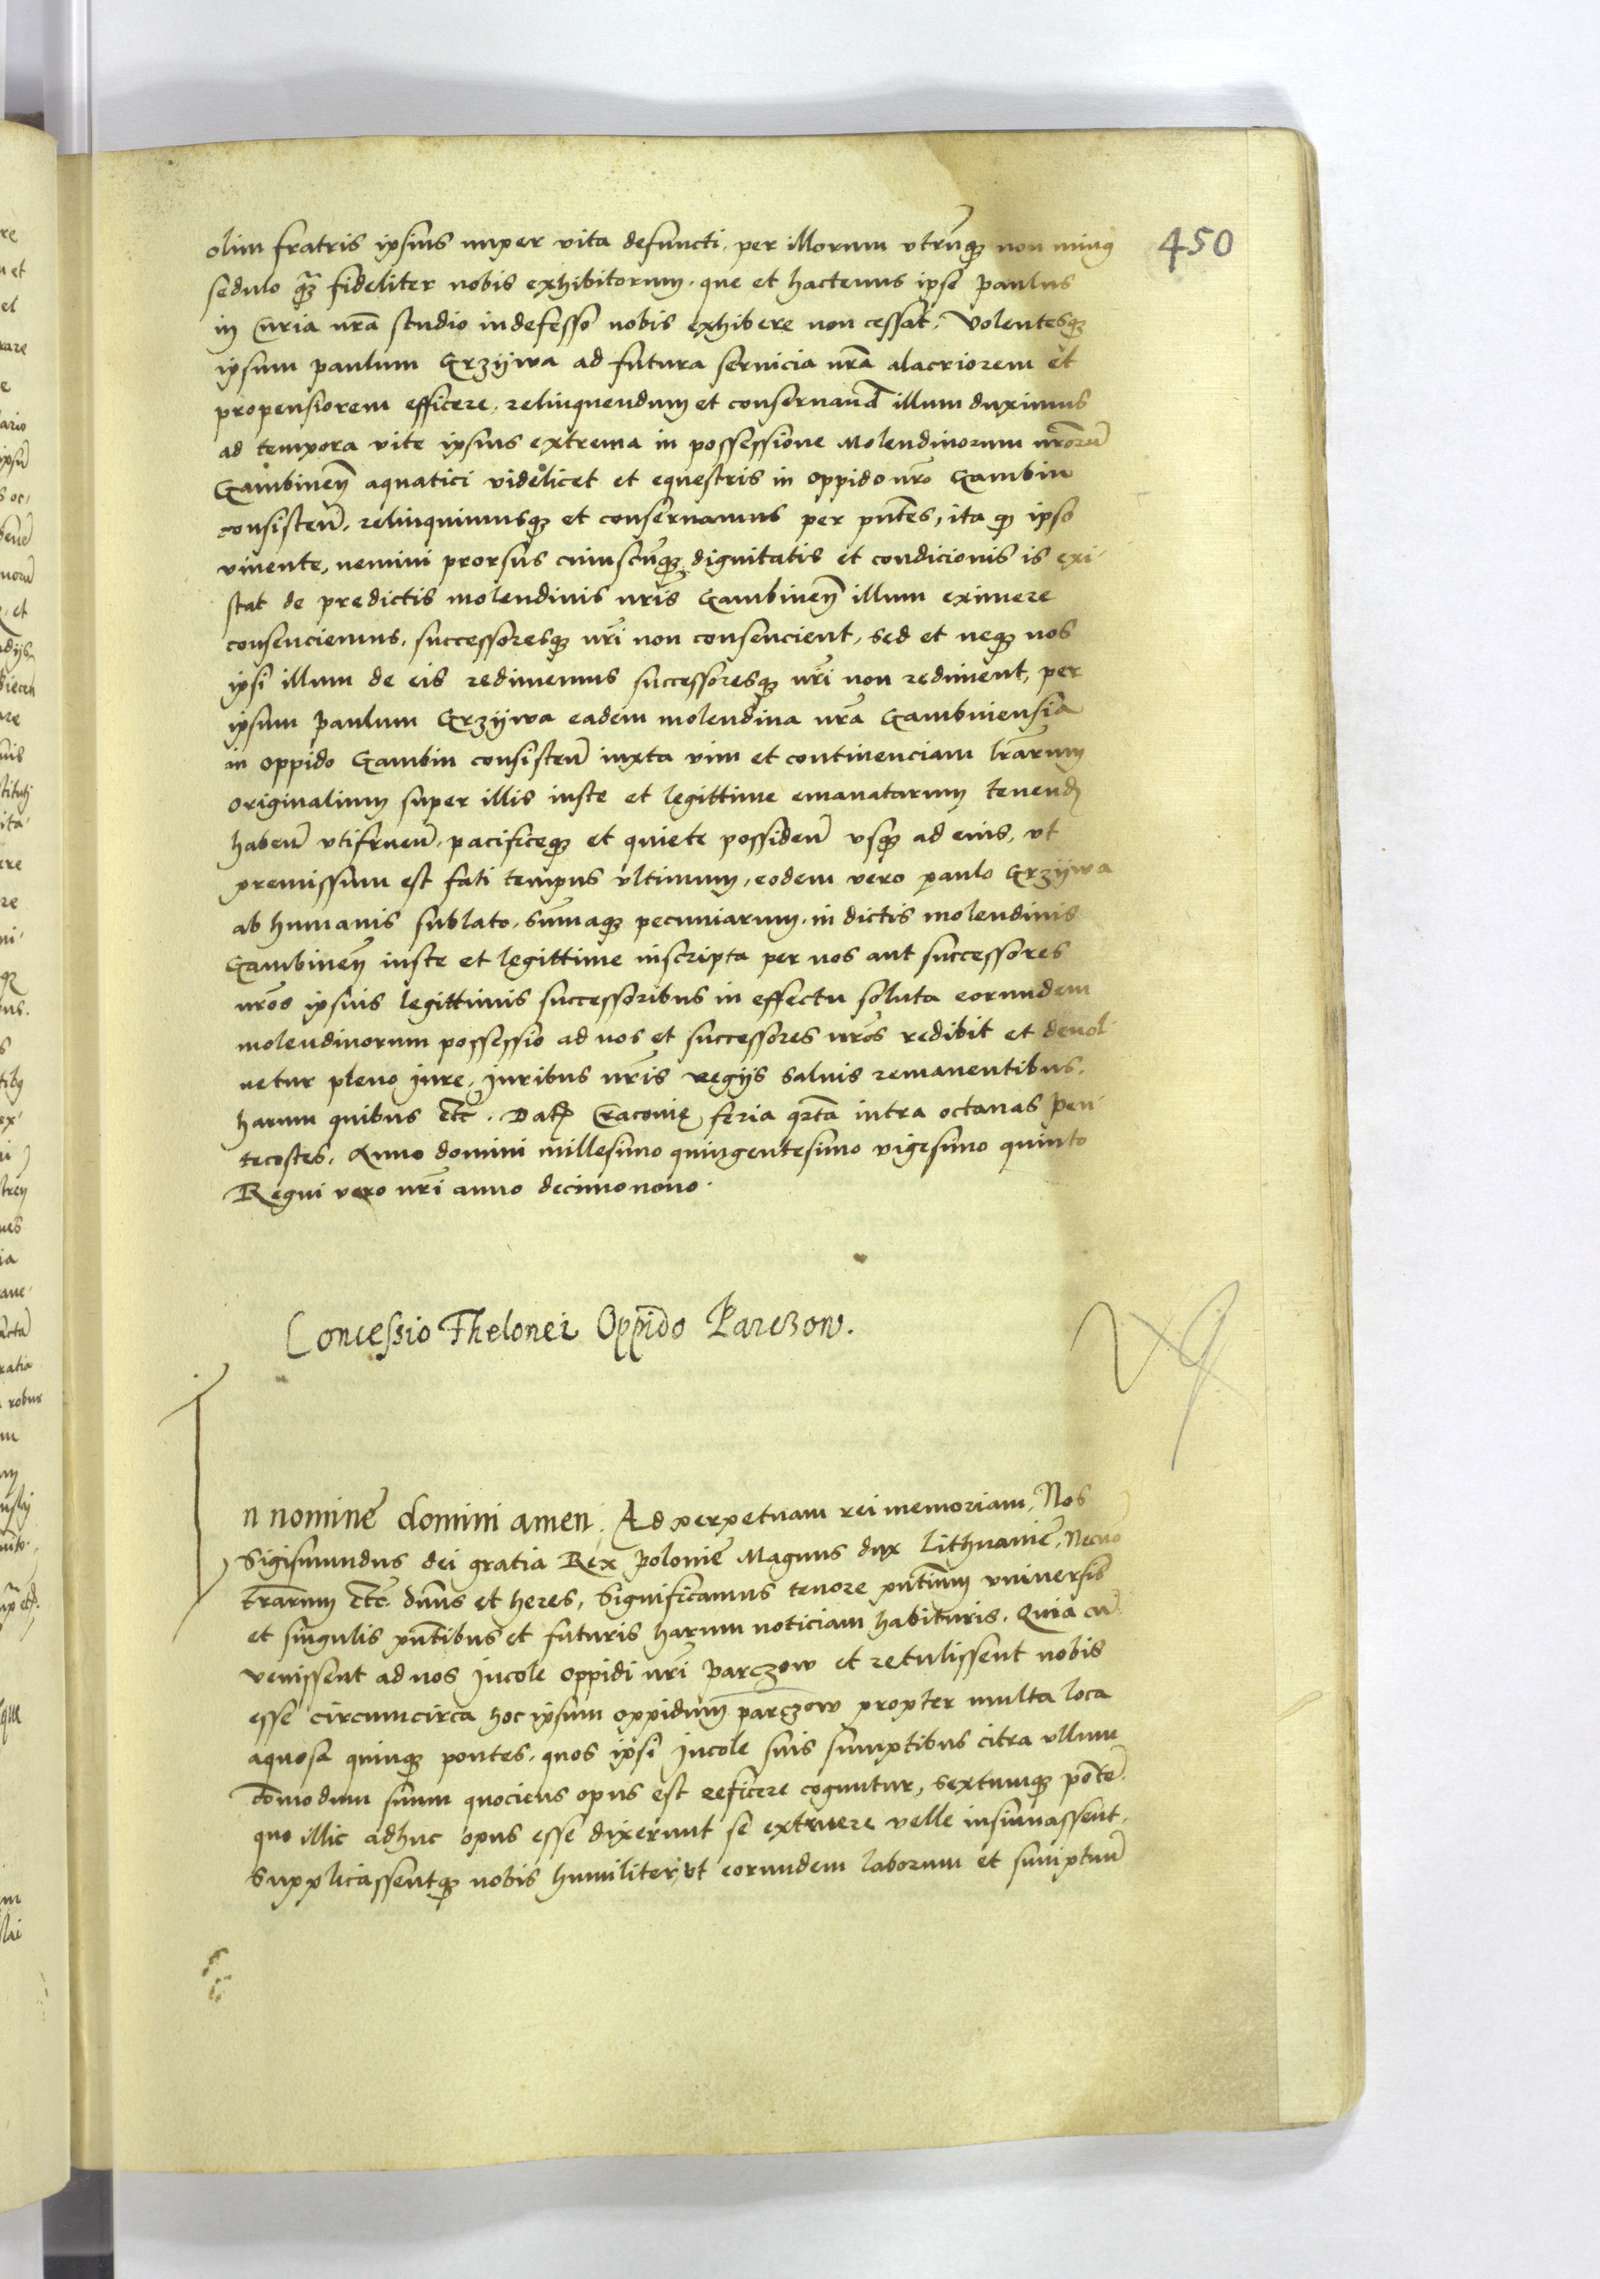 450
olim fratris ipsius nuper vita defuncti, per illorum vtrũq3 non minq
sedulo q̃3 fideliter nobis exhibitorum, que et hactenus ipse paulus
in Curia nrã studio indefesso nobis exhibere non cessat, Volentesq3
ipsum paulum Grzijwa ad futura seruicia nrã alacriorem et
propensiorem efficere, relinquendum et conseruand illum duximus
ad tempora vite ipsius extrema in possessione Molendinorum nrõrũ
Gambineñ aquatici videlicet et equestris in oppido nrõ Gambin
consisteñ, relinquimusq3 et conseruamus per pñtes, ita q3 ipso
viuente, nemini prorsus cuiuscũq3 dignitatis et condicionis is exi-
stat de predictis molendinis nrĩs Gambineñ illum eximere
consenciemus, successoresq3 nrĩ non consencient, sed et neq3 nos
ipsi illum de eis redimemus successoresq3 nrĩ non rediment, per
ipsum paulum Grzijwa eadem molendina nrã Gambiniensia
in oppido Gambin consisteñ iuxta vim et continenciam lrãrum
originalium super illis iuste et legittime emanatarum tenend
habeñ vtifrueñ, pacificeq3 et quiete possideñ vsq3 ad eius, vt
premissum est fati tempus vltimum, eodem vero paulo Grzijwa
ab humanis sublato, sũmaq3 pecuniarum, in dictis molendinis
Gambineñ iuste et legittime inscripta per nos aut successores
nrõs ipsius legittimis successoribus in effectu soluta eorundem
molendinorum possessio ad nos et successores nrõs redibit et deuol-
uetur pleno iure, Juribus nrĩs regijs saluis remanentibus,
harum quibus etc̃. Dat Cracovię feria qrta intra octauas Pen-
tecostes, Anno domini millesimo quingentesimo vigesimo quinto
Regni vero nrĩ anno decimonono.
Concessio Thelonei Oppido Parczow.
In nomine domini amen. Ad perpetuam rei memoriam, Nos
Sigismundus dei gratia Rex polonie Magnus dux Lithuanie, Necno
trãrum etc̃. dñus et heres, Significamus tenore pñtium vniuersis
et singulis pñtibus et futuris harum noticiam habituris. Quia cũ
venissent ad nos Jncole oppidi nrĩ parczow et retulissent nobis
esse circumcirca hoc ipsum oppidum parczow propter multa loca
aquosa quinq3 pontes, quos ipsi Jncole suis sumptibus citra vllum
cõmodum suum quociens opus est reficere coguntur, sextumq3 põte
quo illic adhuc opus esse dixerunt se extruere velle insinuassent,
Supplicassentq3 nobis humiliter, vt eorundem laborum et sumptuũ